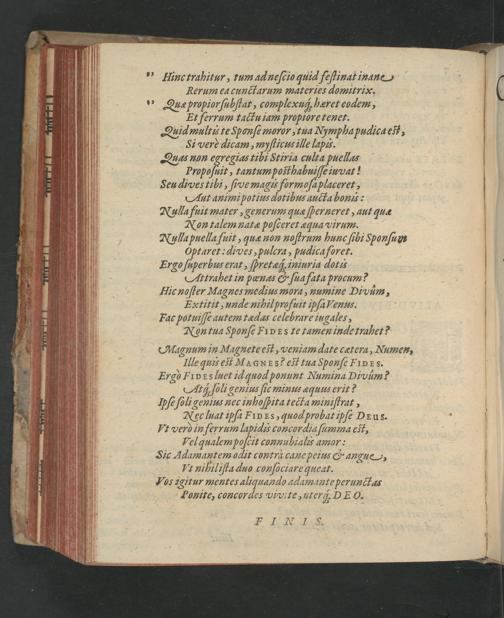 " Hinc trahitur, tum ad nescio quid festinat inane
Rerum ea cunctarum materies domitrix.
" Quæ propior substat, complexuq́; hæret eodem,
Et ferrum tactu iam propiore tenet.
Quid multis te Sponse moror, tua Nympha pudica est,
Si verè dicam, mysticus ille lapis.
Quas non egregias tibi Stiria culta puellas
Proposuit, tantum posthabuisse iuvat!
Seu dives tibi, sive magis formosa placeret,
Aut animi potius dotibus aucta bonis:
Nulla fuit mater, generum quæ sperneret, aut quæ
Non talem natæ posceret æqua virum.
Nulla puella fuit, quæ non nostrum hunc sibi Sponsum
Optaret: dives, pulcra, pudica foret.
Ergo superbus erat, spretæq́; iniuria dotis
Attrahet in pœnas & sua fata procum?
Hic noster Magnes medius mora, numine Divûm,
Extitit, unde nihil profuit ipsa Venus.
Fac potuisse autem tædas celebrare iugales,
Non tua Sponse FIDES te tamen inde trahet?
Magnum in Magnete est, veniam date cætera, Numen,
Ille quis est MAGNES? est tua Sponse FIDES.
Ergò FIDES luet id quod ponunt Numina Divûm?
Atq́; soli genius sic minus æquus erit?
Ipse soli genius nec inhospita tecta ministrat,
Nec luat ipsa FIDES, quod probat ipse DEUS.
Vt verò in ferrum lapidis concordia summa est,
Vel qualem poscit connubialis amor:
Sic Adamantem odit contrà cane peius & angue,
Vt nihil ista duo consociare queat.
Vos igitur mentes aliquando adamante perunctas
Ponite, concordes vivite, uterq́; DEO.
FINIS.